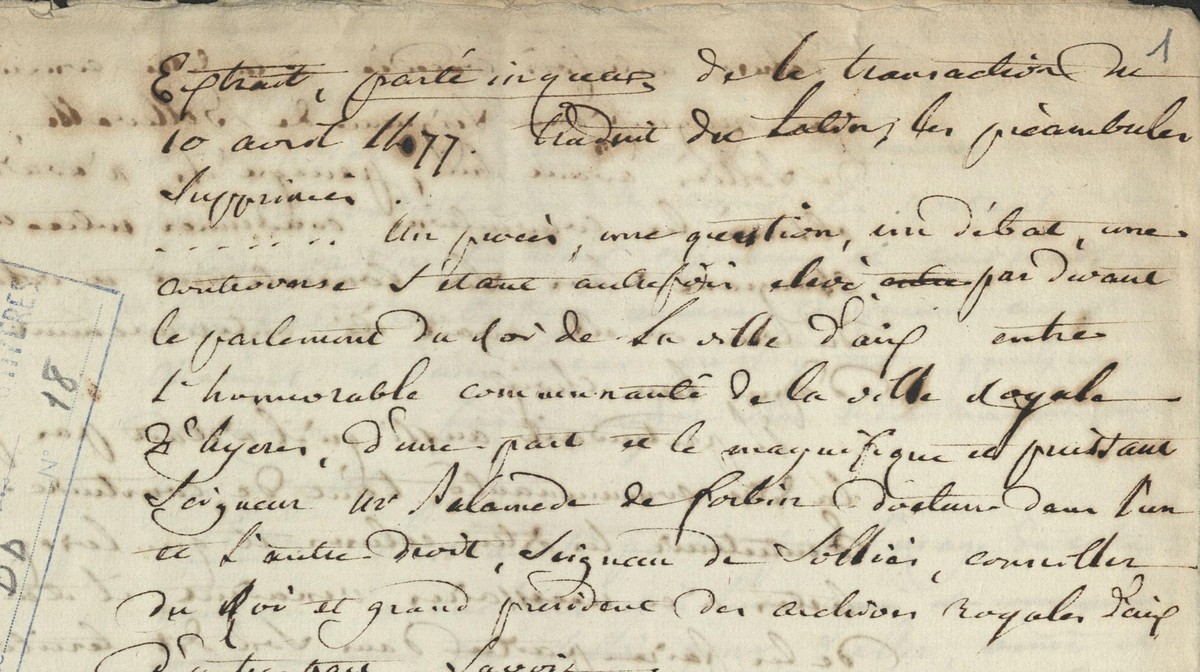 1
Extrait, parté in quâ, de la transaction du
10 avril 1477. traduit du Latin, les préambules
Supprimés.
........ Un procès, une question, un débat, une
controverse S'étant autrefois élevé entre par devant
le parlement du Roi de La ville d'aix entre
L'honnorable communauté de la ville Royale
d'hyeres, d'une part et le magnifique et puissant
Seigneur Mr Palamede de forbin docteur dans l'un
et L'autre droit, Seigneur de Solliés, conseiller
du Roi et grand président des archives Royales d'aix
d'autre part Savoir
N° 18
DD